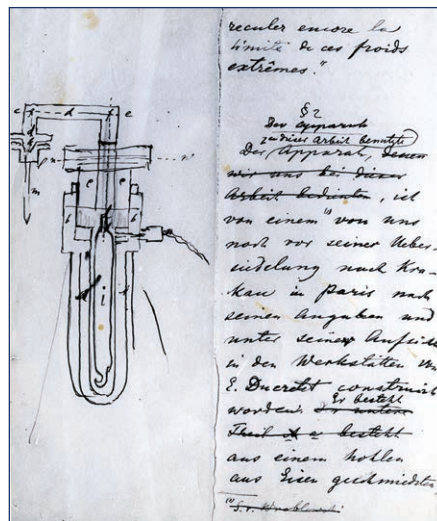 c
d
e
n
n'
m
e
e
b
b
i
reculer encore la
limite de ces froids
extrêmes."
§ 2
Der Apparat
zu dieser Arbeit benutzte
Der Apparat, dessen
wir uns bei dieser
Arbeit bedienten, ist
von einem von uns
noch vor seiner Ueber-
siedelung nach Kra-
kau in Paris nach
seinen Angaben und
unter seiner Aufsicht
in den Werkstätten von
E. Ducretet construirt
Er besteht
worden. Der untere
Theil besteht
aus einem hohlen
aus Eisen geschmiedeten
S. v. Wroblewski